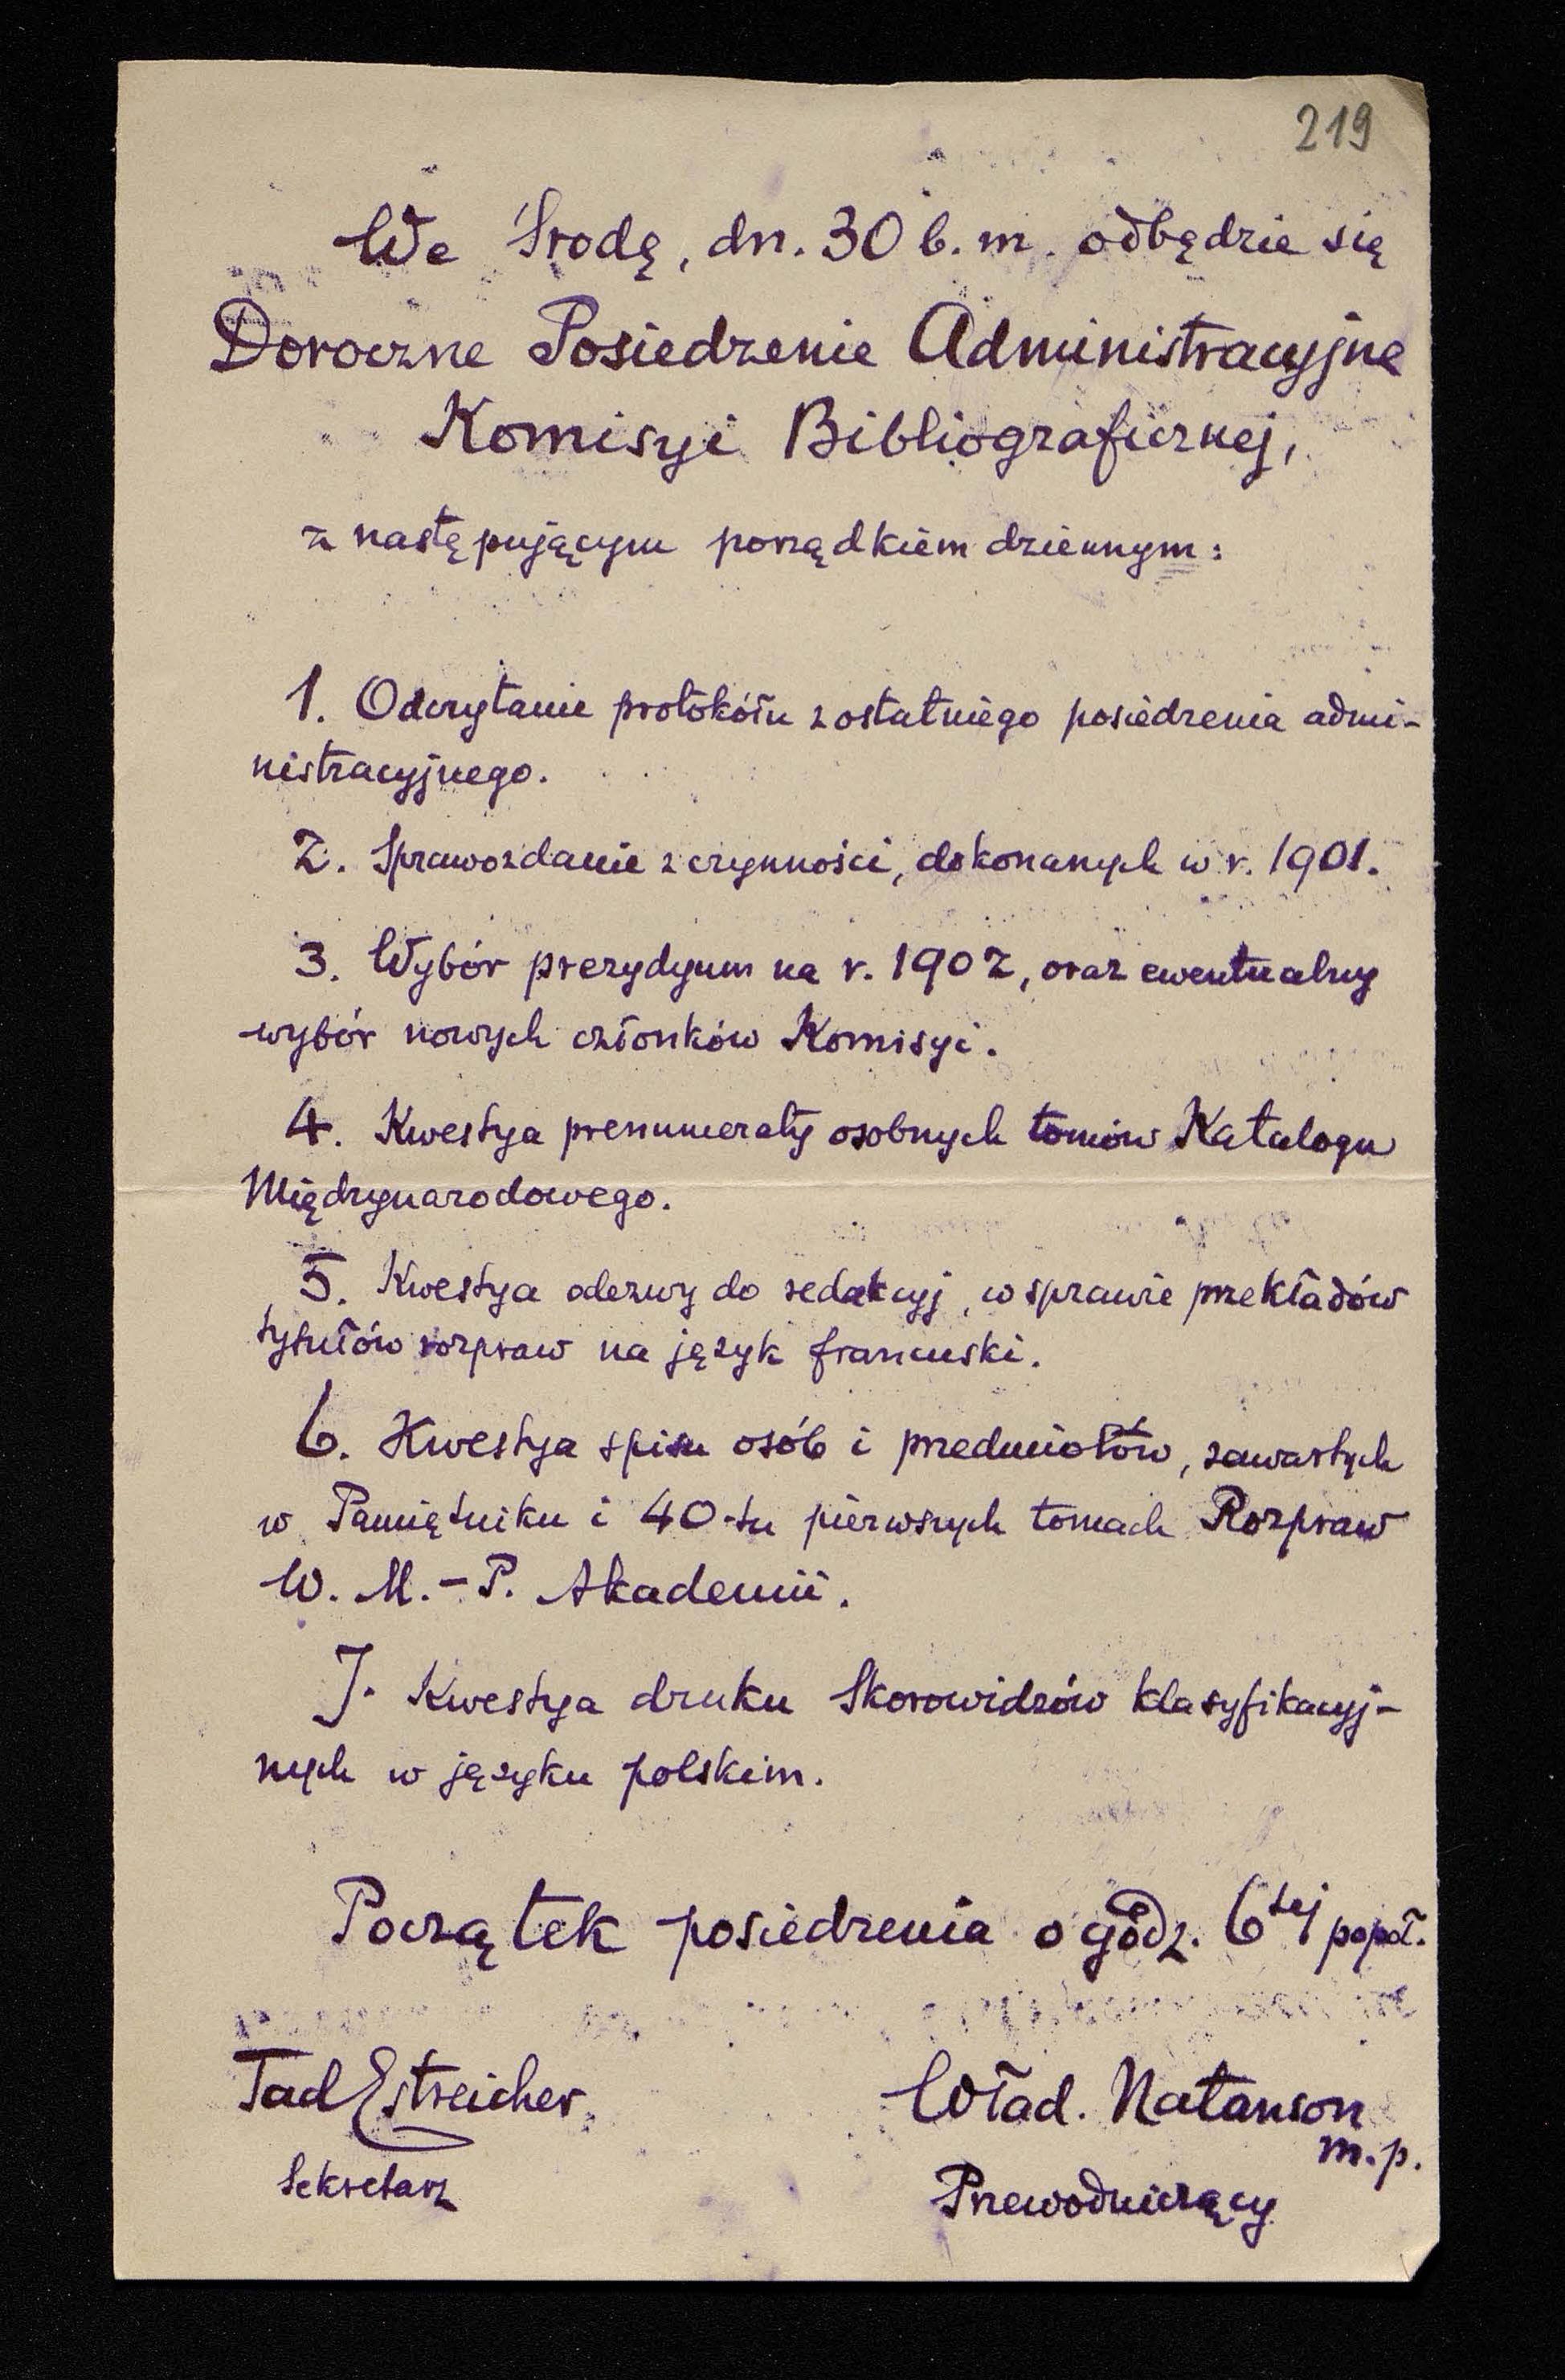 219
We Środę, dn. 30 b. m. odbędzie się
Doroczne Posiedzenie Administracyjne
Komisyi Bibliograficznej,
z następującym porządkiem dziennym:
1. Odczytanie protokółu z ostatniego posiedzenia admi-
nistracyjnego.
2. Sprawozdanie z czynności, dokonanych w r. 1901.
3. Wybór prezydyum na r. 1902, oraz ewentualny
wybór nowych członków Komisyi.
4. Kwestya prenumeraty osobnych tomów Katalogu
Międzynarodowego.
5. Kwestya odezwy do redakcyj, w sprawie przekładów
tytułów rozpraw na język francuski.
6. Kwestya spisu osób i przedmiotów, zawartych
w Pamiętniku i 40-tu pierwszych tomach Rozpraw
W. M.-P. Akademii.
7. Kwestya druku Skorowidzów klasyfikacyj-
nych w języku polskim.
Początek posiedzenia o godz. 6tej popoł.
Tad Estreicher
Wład. Natanson
m. p.
Sekretarz
Przewodniczący